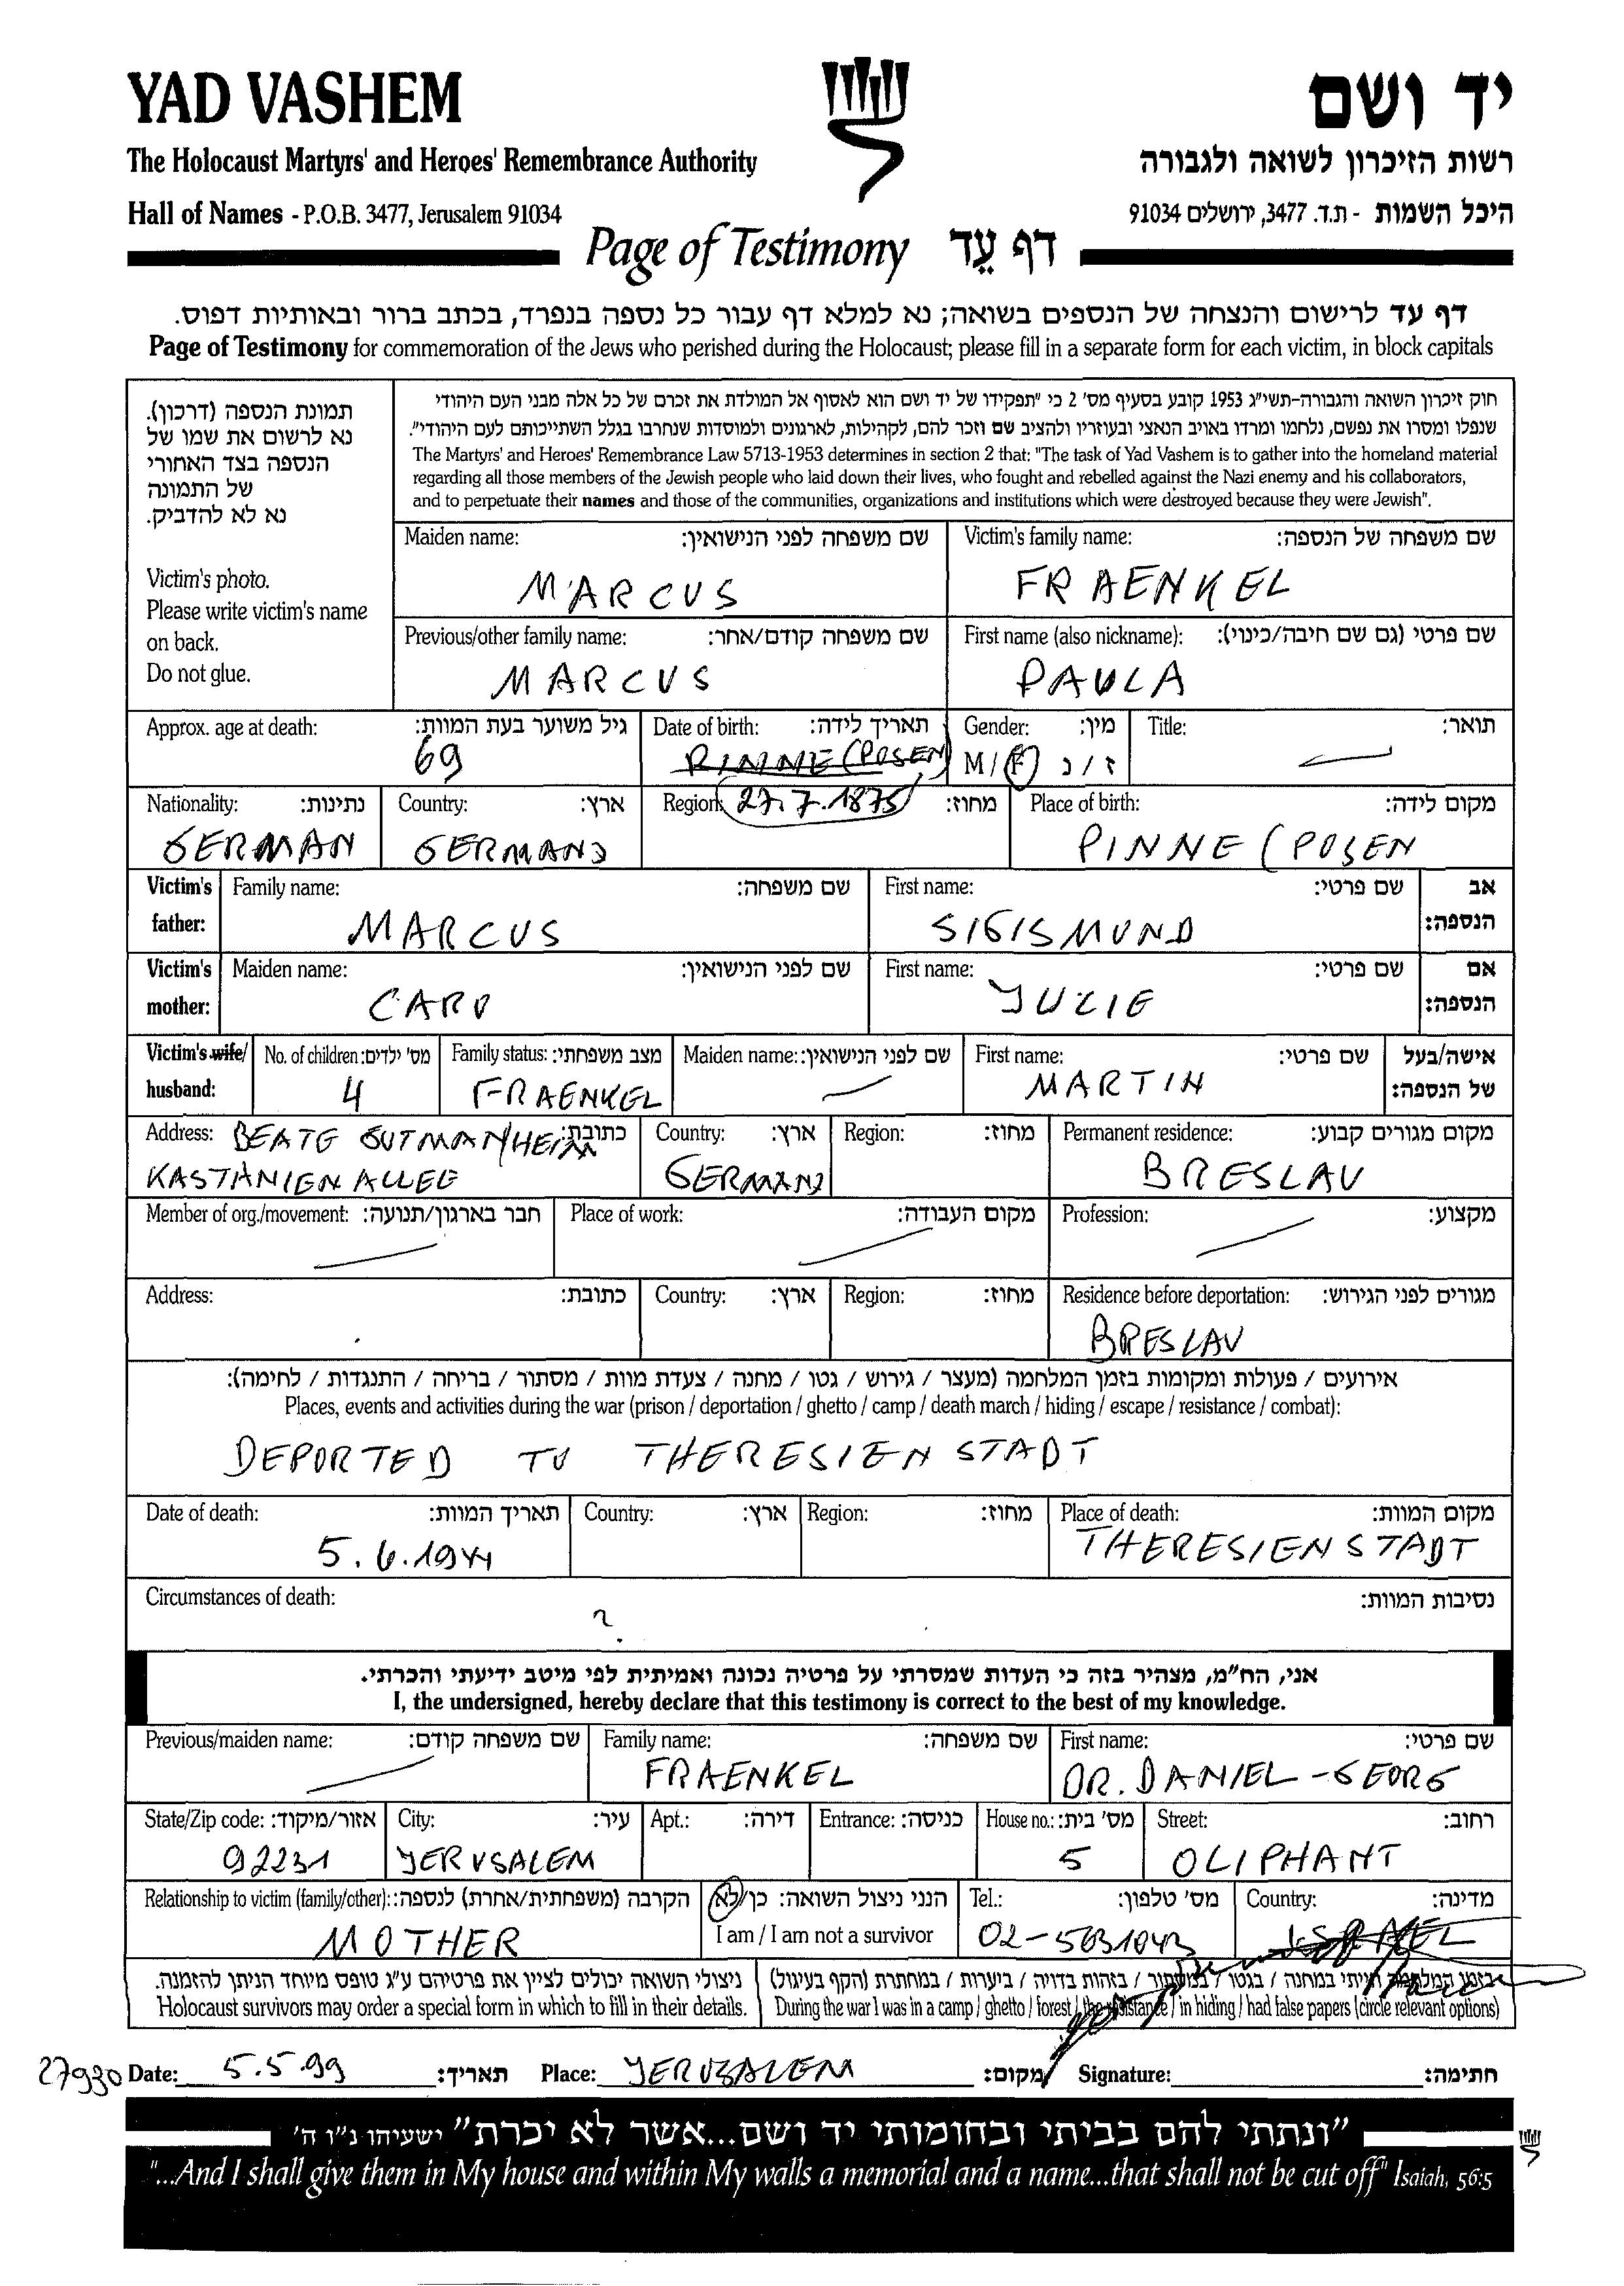 YAD VASHEM
יד ושם
The Holocaust Martyrs' and Heroes' Remembrance Authority
רשות הזיכרון לשואה ולגבורה
Hall of Names - P.O.B. 3477, Jerusalem 91034
היכל השמות - ת.ד. 3477, ירושלים 91034
Page of Testimony דף עֵד
דף עד לרישום והנצחה של הנספים בשואה; נא למלא דף עבור כל נספה בנפרד, בכתב ברור ובאותיות דפוס.
Page of Testimony for commemoration of the Jews who perished during the Holocaust; please fill in a separate form for each victim, in block capitals
תמונת הנספה (דרכון).
נא לרשום את שמו של
הנספה בצד האחורי
של התמונה
נא לא להדביק.
Victim's photo.
Please write victim's name
on back.
Do not glue.
חוק זיכרון השואה והגבורה-תשי"ג 1953 קובע בסעיף מס' 2 כי "תפקידו של יד ושם הוא לאסוף אל המולדת את זכרם של כל אלה מבני העם היהודי
שנפלו ומסרו את נפשם, נלחמו ומרדו באויב הנאצי ובעוזריו ולהציב שם וזכר להם, לקהילות, לארגונים ולמוסדות שנחרבו בגלל השתייכותם לעם היהודי".
The Martyrs' and Heroes' Remembrance Law 5713-1953 determines in section 2 that: "The task of Yad Vashem is to gather into the homeland material
regarding all those members of the Jewish people who laid down their lives, who fought and rebelled against the Nazi enemy and his collaborators,
and to perpetuate their names and those of the communities, organizations and institutions which were destroyed because they were Jewish".
Maiden name: שם משפחה לפני הנישואין:
MARCUS
Victim's family name: שם משפחה של הנספה:
FRAENKEL
Previous/other family name: שם משפחה קודם/אחר:
MARCUS
First name (also nickname): שם פרטי (גם שם חיבה/כינוי):
PAULA
Approx. age at death: גיל משוער בעת המוות:
69
Date of birth: תאריך לידה:
PINNE (POSEN)
Gender: מין:
M/F ז/נ
Title: תואר:
Nationality: נתינות:
GERMAN
Country: ארץ:
GERMANY
Region: 27.7.1875 מחוז:
Place of birth: מקום לידה:
PINNE (POSEN
Victim's father:
Family name: שם משפחה:
MARCUS
First name: שם פרטי:
SIGISMUND
אב הנספה:
Victim's mother:
Maiden name: שם לפני הנישואין:
CARO
First name: שם פרטי:
JULIE
אם הנספה:
Victim's wife/ husband:
No. of children: מס' ילדים:
4
Family status: מצב משפחתי:
FRAENKEL
Maiden name: שם לפני הנישואין:
First name: שם פרטי:
MARTIN
אישה/בעל של הנספה:
Address: BEATE GUTMANHEIM כתובת:
KASTANIEN ALLEE
Country: ארץ:
GERMANY
Region: מחוז:
Permanent residence: מקום מגורים קבוע:
BRESLAU
Member of org./movement: חבר בארגון/תנועה:
Place of work: מקום העבודה:
Profession: מקצוע:
Address: כתובת:
Country: ארץ:
Region: מחוז:
Residence before deportation: מגורים לפני הגירוש:
BRESLAU
אירועים / פעולות ומקומות בזמן המלחמה (מעצר / גירוש / גטו / מחנה / צעדת מוות / מסתור / בריחה / התנגדות / לחימה):
Places, events and activities during the war (prison / deportation / ghetto / camp / death march / hiding / escape / resistance / combat):
DEPORTED TO THERESIENSTADT
Date of death: תאריך המוות:
5.6.1944
Country: ארץ:
Region: מחוז:
Place of death: מקום המוות:
THERESIENSTADT
Circumstances of death: נסיבות המוות:
?
אני, הח"מ, מצהיר בזה כי העדות שמסרתי על פרטיה נכונה ואמיתית לפי מיטב ידיעתי והכרתי.
I, the undersigned, hereby declare that this testimony is correct to the best of my knowledge.
Previous/maiden name: שם משפחה קודם:
Family name: שם משפחה:
FRAENKEL
First name: שם פרטי:
DR. DANIEL-GEORG
State/Zip code: אזור/מיקוד:
92231
City: עיר:
JERUSALEM
Apt.: דירה:
Entrance: כניסה:
House no.: מס' בית:
5
Street: רחוב:
OLIPHANT
Relationship to victim (family/other): הקרבה (משפחתית/אחרת) לנספה:
MOTHER
הנני ניצול השואה: כן/לא
I am / I am not a survivor
Tel.: מס' טלפון:
02-5631043
Country: מדינה:
ISRAEL
ניצולי השואה יכולים לציין את פרטיהם ע"ג טופס מיוחד הניתן להזמנה.
Holocaust survivors may order a special form in which to fill in their details.
בזמן המלחמה הייתי במחנה / בגטו / במסתור / בזהות בדויה / ביערות / במחתרת (הקף בעיגול)
During the war I was in a camp / ghetto / forest / the resistance / in hiding / had false papers (circle relevant options)
27930
Date: 5.5.99 תאריך:
Place: JERUSALEM מקום:
Signature: חתימה:
"ונתתי להם בביתי ובחומותי יד ושם...אשר לא יכרת" ישעיהו נ"ו ה'
"...And I shall give them in My house and within My walls a memorial and a name...that shall not be cut off" Isaiah, 56:5